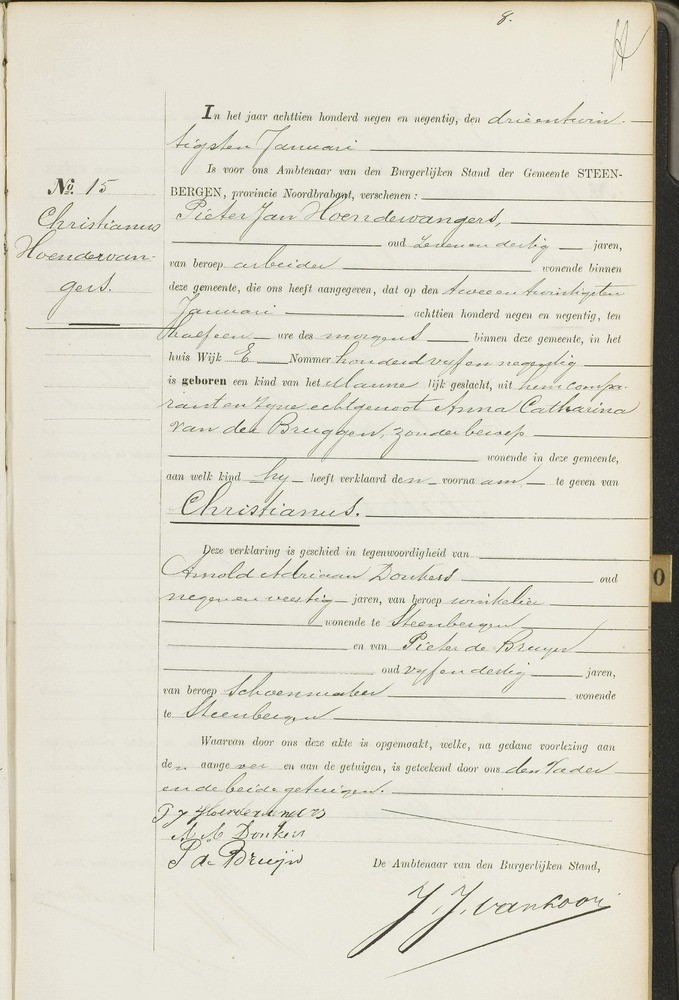 8.
In het jaar achttien honderd negen en negentig, den drieentwin-
tigsten Januari
Is voor ons Ambtenaar van den Burgerlijken Stand der Gemeente STEEN-
BERGEN, provincie Noordbrabant, verschenen :
No. 15
Christianus
Hoendervan-
gers.
Pieter Jan Hoendervangers,
oud zevenendertig jaren,
van beroep arbeider wonende binnen
deze gemeente, die ons heeft aangegeven, dat op den tweeentwintigsten
Januari achttien honderd negen en negentig, ten
half een ure des morgens binnen deze gemeente, in het
huis Wijk E Nommer honderd vyfennegentig
is geboren een kind van het Manne lijk geslacht, uit hem compa-
rant en zyne echtgenoot Anna Catharina
van der Bruggen, zonder beroep
wonende in deze gemeente,
aan welk kind hy heeft verklaard den voorna am te geven van
Christianus.
Deze verklaring is geschied in tegenwoordigheid van
Arnold Adriaan Donkers oud
negenenveertig jaren, van beroep winkelier
wonende te Steenbergen
en van Pieter de Bruyn
oud vyfendertig jaren,
van beroep Schoenmaker wonende
te Steenbergen
Waarvan door ons deze akte is opgemaakt, welke, na gedane voorlezing aan
den aange ver en aan de getuigen, is geteekend door ons den Vader
en de beide getuigen.
P J Hoendervangers
A A Donkers
P de Bruijn
De Ambtenaar van den Burgerlijken Stand,
J. J. van Loon
0